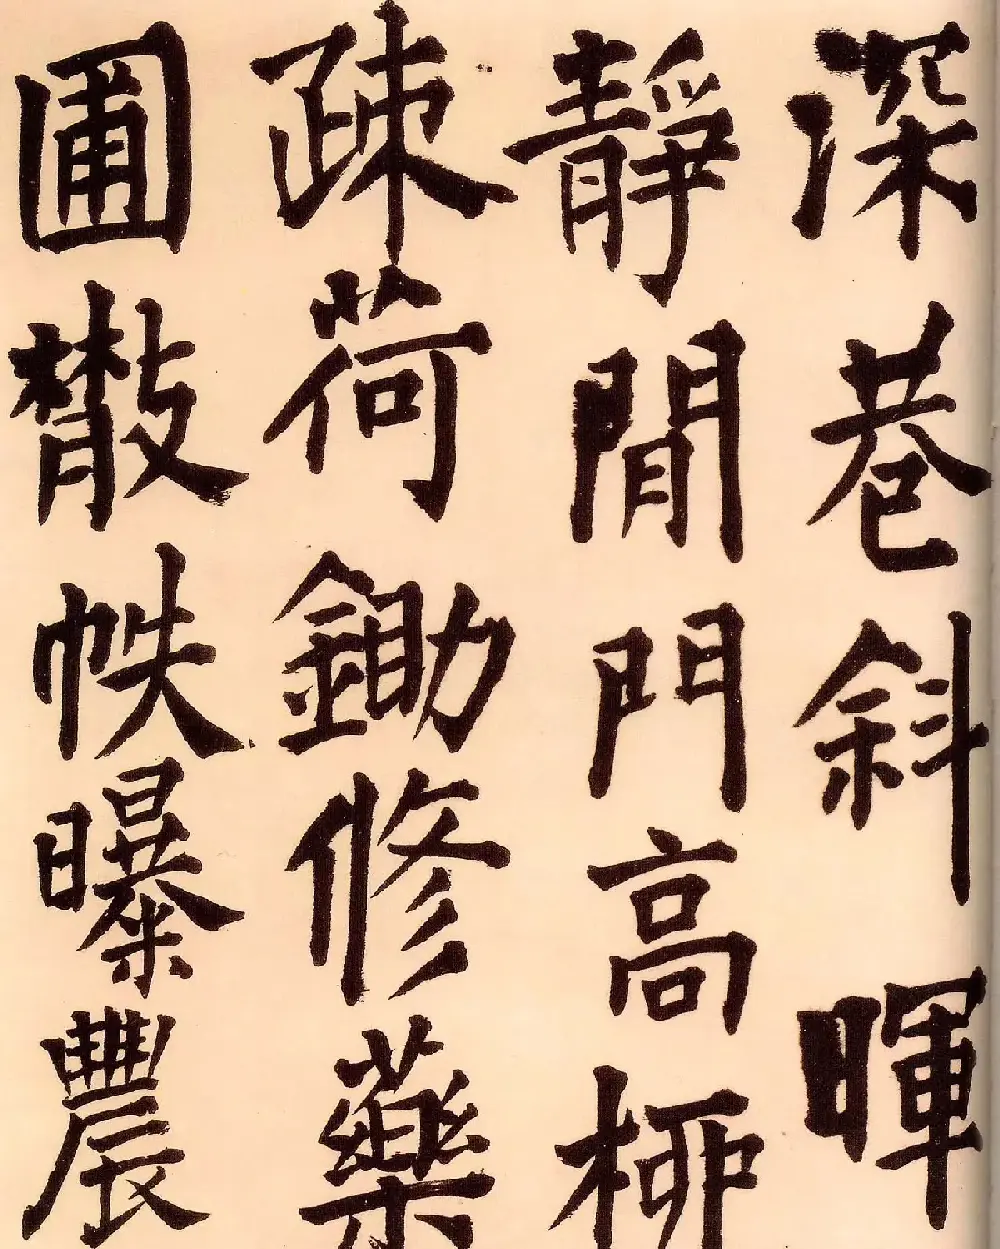 深巷斜暉
靜閒門高柳
疎荷鋤修藥
圃散帙曝農